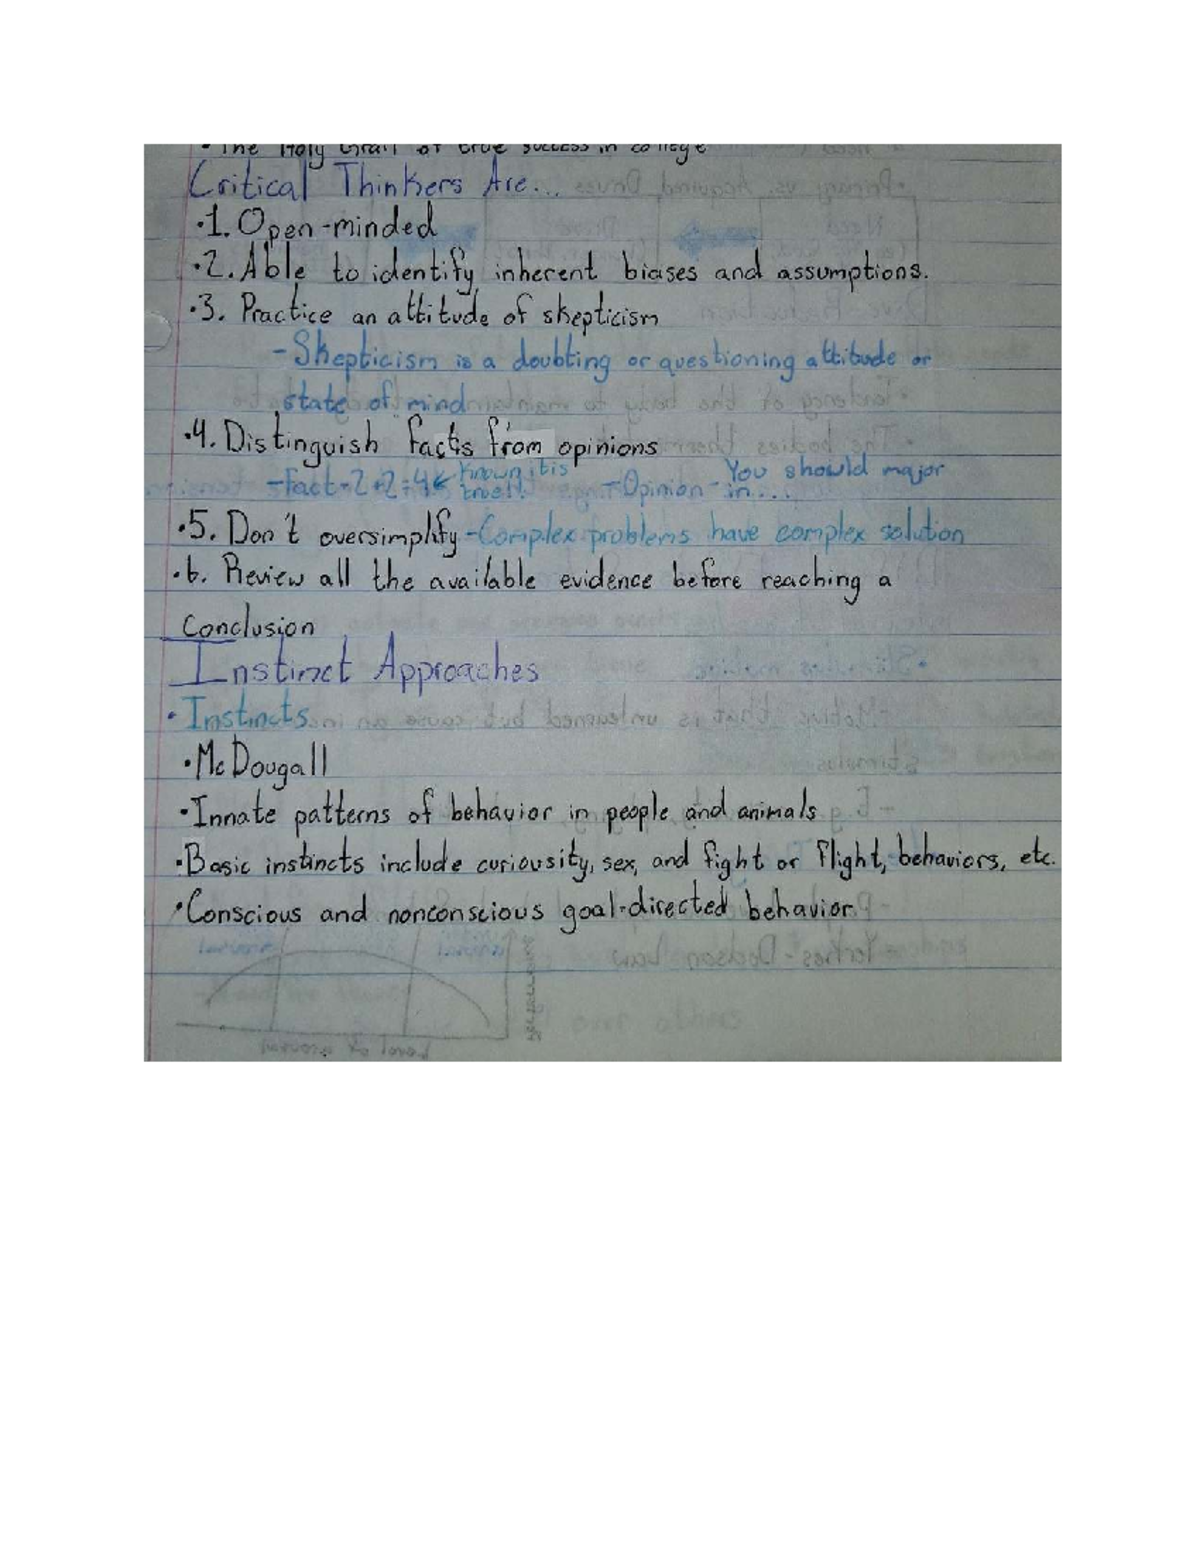 • The Holy Grail of true success in college
Critical Thinkers Are...
•1. Open-minded
•2. Able to identify inherent biases and assumptions.
•3. Practice an attitude of skepticism
-Skepticism is a doubting or questioning attitude or
state of mind
•4. Distinguish facts from opinions
-Fact-2+2=4 Known it is true!! -Opinion- You should major in....
•5. Don't oversimplify -Complex problems have complex solution
•6. Review all the available evidence before reaching a
conclusion
Instinct Approaches
• Instincts
•McDougall
•Innate patterns of behavior in people and animals
•Basic instincts include curiousity, sex, and fight or flight, behaviors, etc.
•Conscious and nonconscious goal-directed behavior